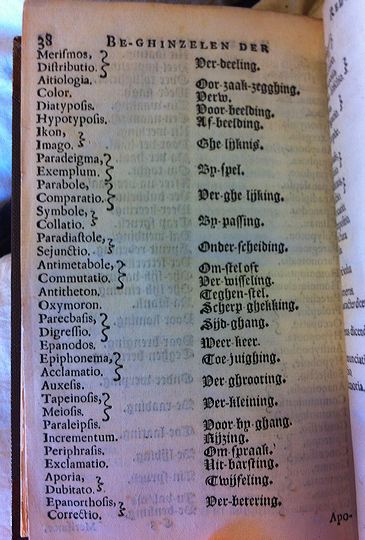 38 BE-GHINZELEN DER
Merismos,
Distributio. Ver-deeling.
Aitiologia. Oor-zaak-zegghing.
Color. Verw.
Diatyposis. Voor-beelding.
Hypotyposis. Af-beelding.
Ikon,
Imago. Ghe lijknis.
Paradeigma,
Exemplum. By-spel.
Parabole,
Comparatio. Ver-ghe lijking.
Symbole,
Collatio. By-passing.
Paradiastole,
Sejunctio. Onder-scheiding.
Antimetabole, Om-stel oft
Commutatio. Ver-wisseling.
Antitheton. Teghen-stel.
Oxymoron. Scherp ghekking.
Parecbasis,
Digressio. Sijd-ghang.
Epanodos. Weer-keer.
Epiphonema,
Acclamatio. Toe-juighing.
Auxesis. Ver-ghrooting.
Tapeinosis,
Meiosis. Ver-kleining.
Paraleipsis. Voor-by-ghang.
Incrementum. Rijzing.
Periphrasis. Om-spraak.
Exclamatio. Uit-barsting.
Aporia,
Dubitatio. Twijfeling.
Epanorthosis,
Correctio. Ver-betering.
Apo-